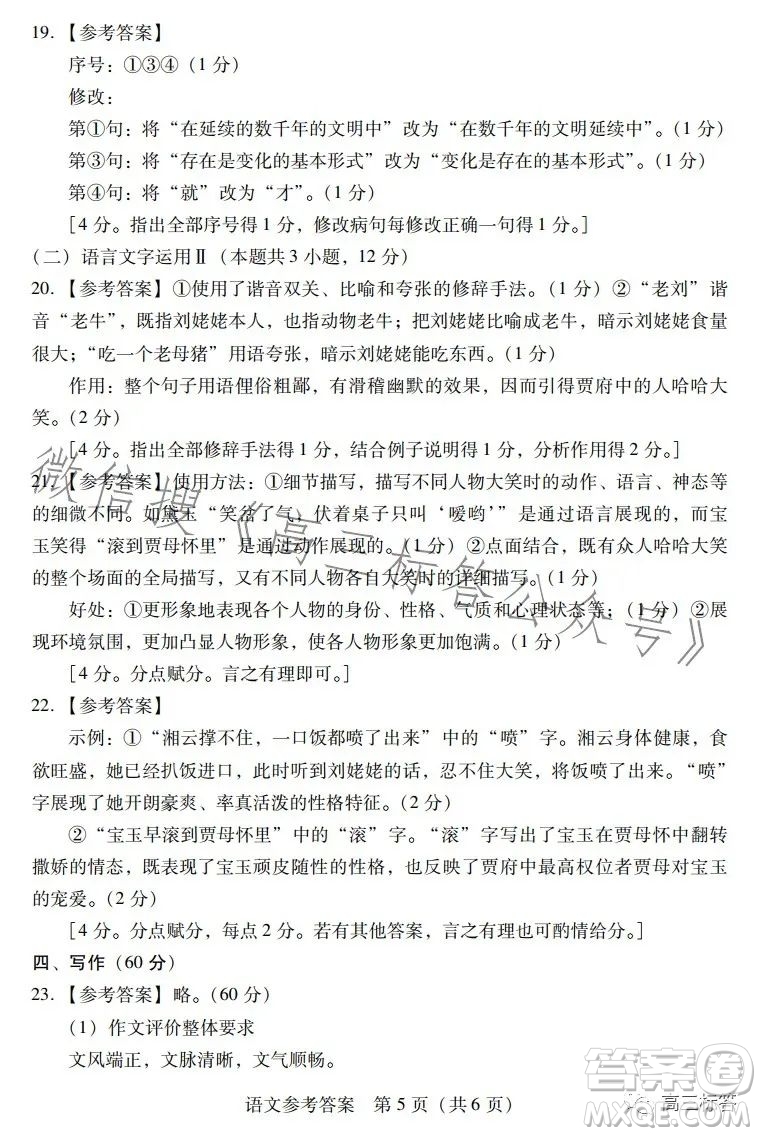 19.【参考答案】
序号：①③④（1 分）
修改：
第①句：将“在延续的数千年的文明中”改为“在数千年的文明延续中”。（1 分）
第③句：将“存在是变化的基本形式”改为“变化是存在的基本形式”。（1 分）
第④句：将“就”改为“才”。（1 分）
［4 分。指出全部序号得 1 分，修改病句每修改正确一句得 1 分。］
（二）语言文字运用Ⅱ（本题共 3 小题，12 分）
20.【参考答案】①使用了谐音双关、比喻和夸张的修辞手法。（1 分）②“老刘”谐
音“老牛”，既指刘姥姥本人，也指动物老牛；把刘姥姥比喻成老牛，暗示刘姥姥食量
很大；“吃一个老母猪”用语夸张，暗示刘姥姥能吃东西。（1 分）
作用：整个句子用语俚俗粗鄙，有滑稽幽默的效果，因而引得贾府中的人哈哈大
笑。（2 分）
［4 分。指出全部修辞手法得 1 分，结合例子说明得 1 分，分析作用得 2 分。］
21.【参考答案】使用方法：①细节描写，描写不同人物大笑时的动作、语言、神态等
的细微不同。如黛玉“笑岔了气，伏着桌子只叫‘嗳哟’”是通过语言展现的，而宝
玉笑得“滚到贾母怀里”是通过动作展现的。（1 分）②点面结合，既有众人哈哈大笑
的整个场面的全局描写，又有不同人物各自大笑时的详细描写。（1 分）
好处：①更形象地表现各个人物的身份、性格、气质和心理状态等；（1 分）②展
现环境氛围，更加凸显人物形象，使各人物形象更加饱满。（1 分）
［4 分。分点赋分。言之有理即可。］
22.【参考答案】
示例：①“湘云撑不住，一口饭都喷了出来”中的“喷”字。湘云身体健康，食
欲旺盛，她已经扒饭进嘴，此时听到刘姥姥的话，忍不住大笑，将饭喷了出来。“喷”
字展现了她开朗豪爽、率真活泼的性格特征。（2 分）
②“宝玉早滚到贾母怀里”中的“滚”字。“滚”字写出了宝玉在贾母怀中翻转
撒娇的情态，既表现了宝玉顽皮随性的性格，也反映了贾府中最高权位者贾母对宝玉
的宠爱。（2 分）
［4 分。分点赋分，每点 2 分。若有其他答案，言之有理也可酌情给分。］
四、写作（60 分）
23.【参考答案】略。（60 分）
（1）作文评价整体要求
文风端正，文脉清晰，文气顺畅。
语文参考答案 第 5 页（共 6 页）
微信搜《高三标答公众号》
答案卷
高三标答